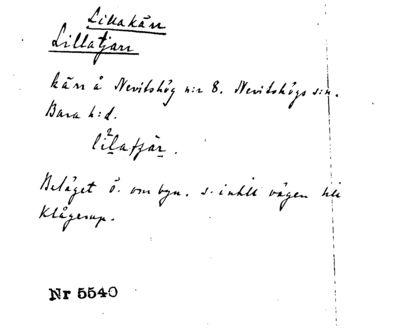 Lillakärr
Lillatjarr
kärr å Nevitshög n:r 8. Nevitshögs s:n.
Bara h:d.
lilatjär.
Beläget ö. om byn. s. intill vägen till
Klågerup.
Nr 5540